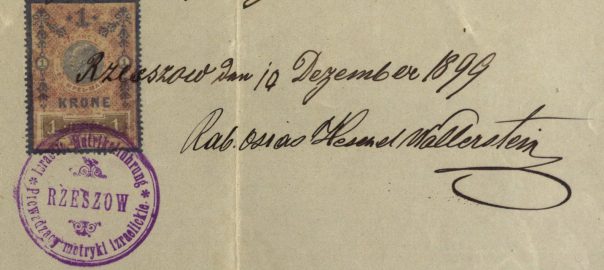 1
1 1
KRONE
1 1
Rzeszow den 10 Dezember 1899
Rab. Osias Heschel Wallerstein
Izrael. Matrikelführung
RZESZOW
Prowadzący metryki izraelickie